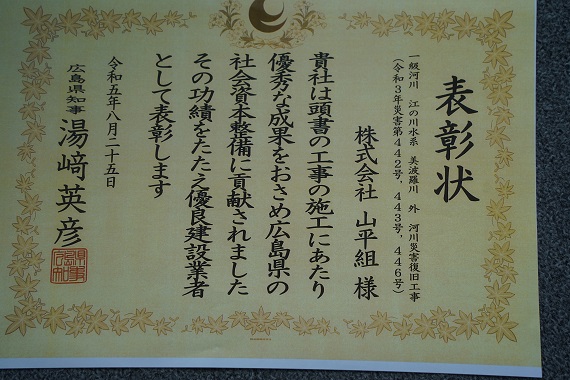 表彰状
一級河川 江の川水系 美波羅川 外 河川災害復旧工事
(令和3年災害第442号,443号,446号)
株式会社 山平組 様
貴社は頭書の工事の施工にあたり
優秀な成果をおさめ広島県の
社会資本整備に貢献されました
その功績をたたえ優良建設業者
として表彰します
令和五年八月二十五日
広島県知事 湯﨑英彦